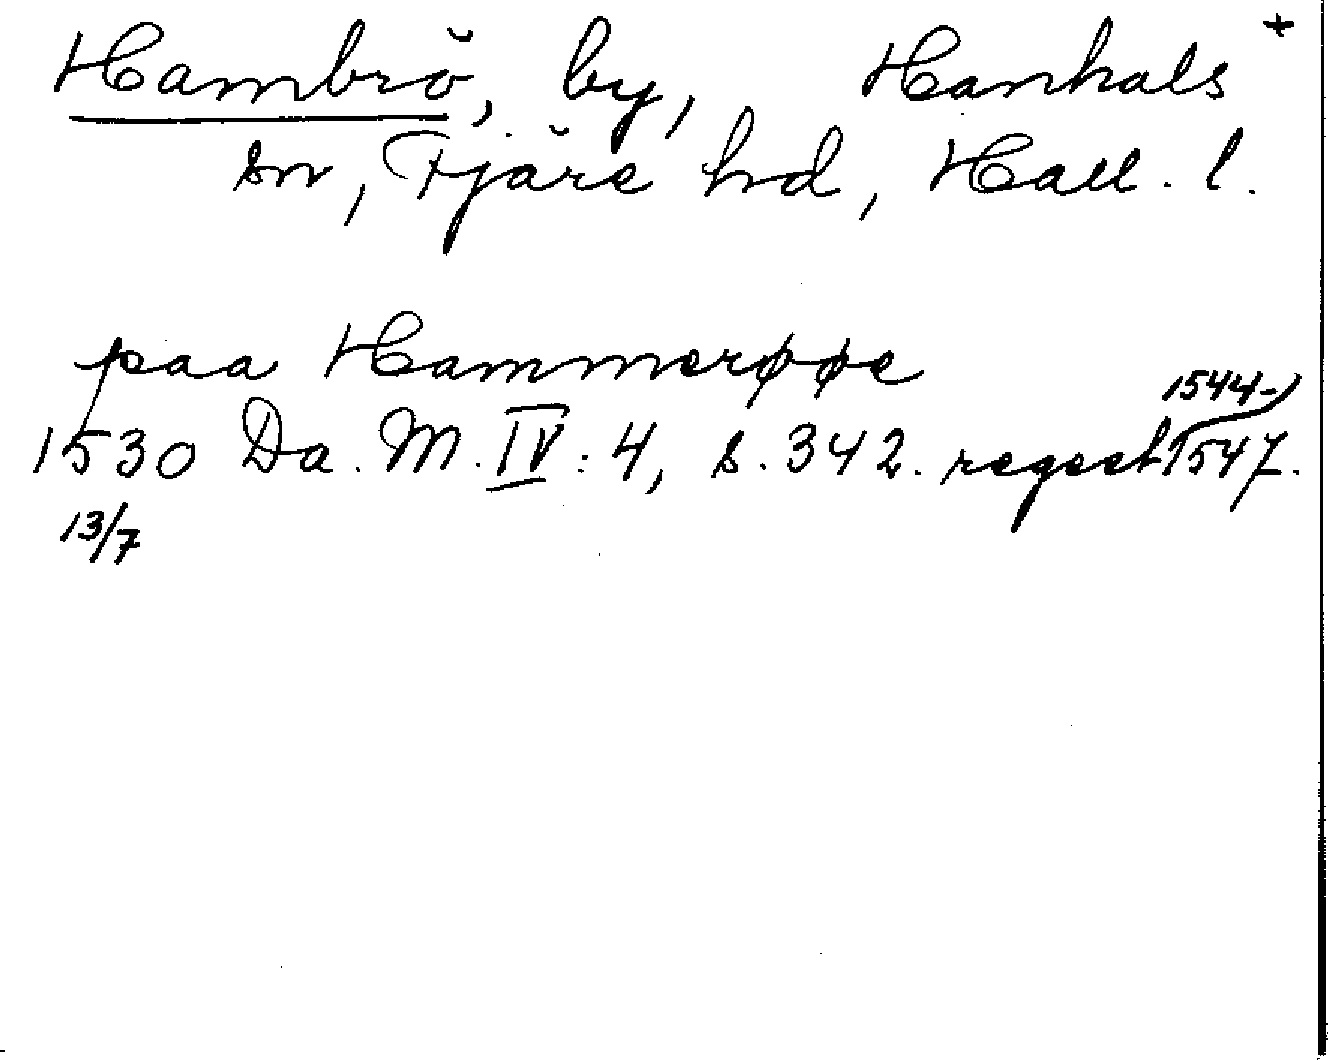 Hambrö, by, Hanhals +
sn, Fjäre hd, Hall. l.
paa Hammerøøe
1544-
1530 Da. M. IV: 4, s. 342. regest 1547.
13/7